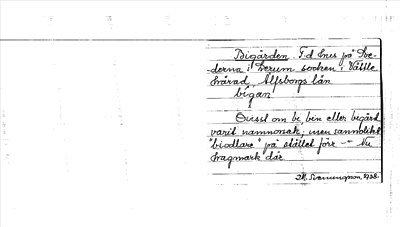 Bigården F.d. hus på Sve-
derna i Lerum socken i Vättle
härad, Älfsborgs län
bigan
Ovisst om bi, bin eller bigård
varit namnorsak, men sannolikt
"biodlare" på stället förr — Nu
hagmark där